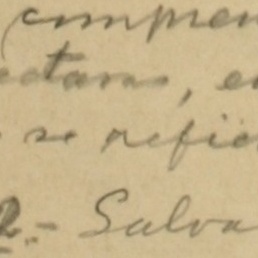 compren
ctaras, e
se refie
2.- Salva